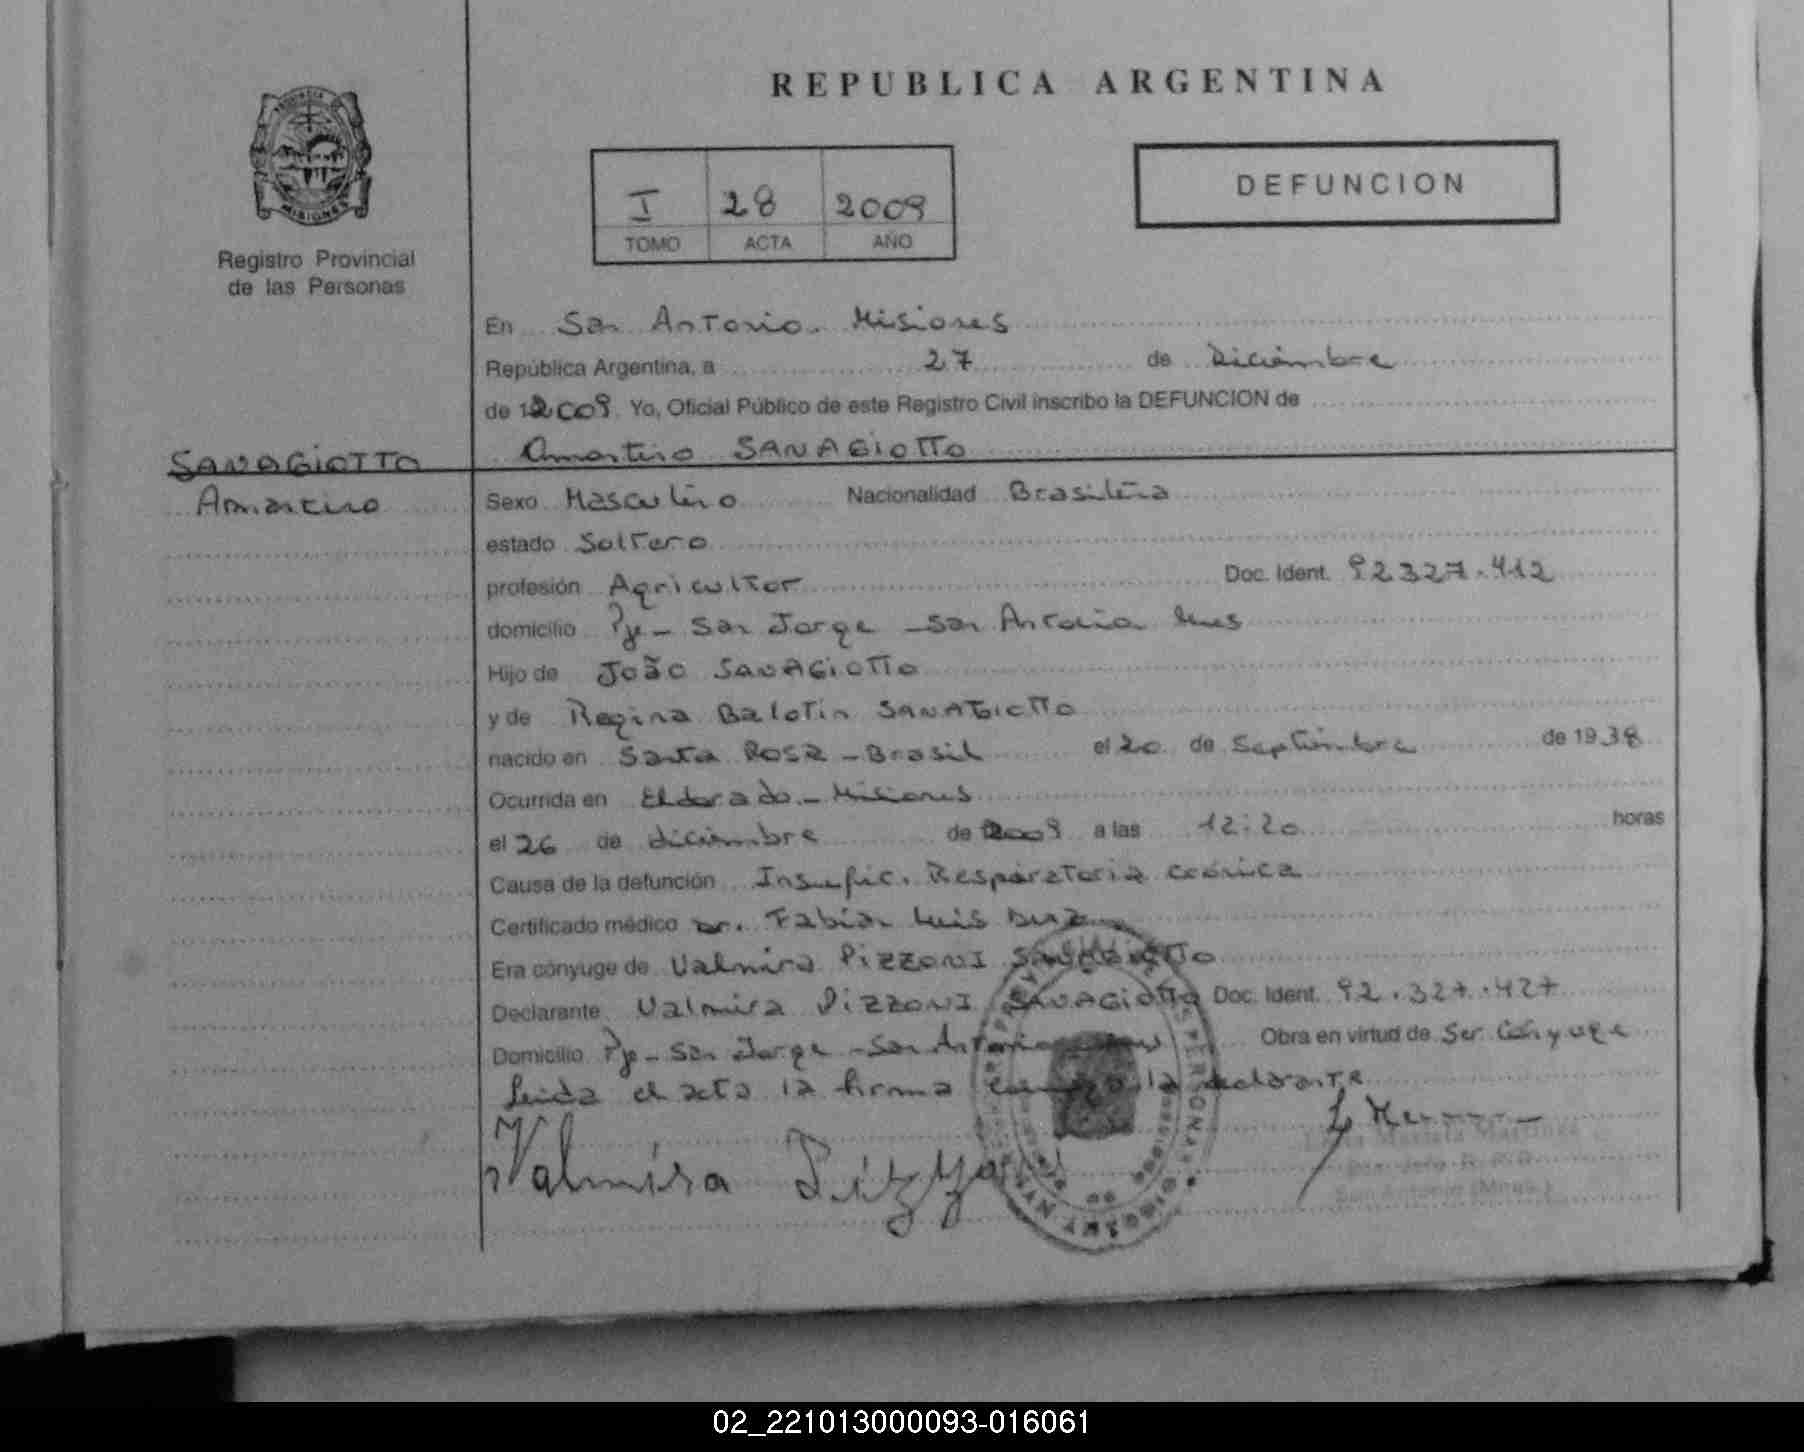 REPUBLICA ARGENTINA
PROVINCIA DE
MISIONES
Registro Provincial
de las Personas
I 28 2009
TOMO ACTA AÑO
DEFUNCION
En San Antonio. Misiones
República Argentina, a 27 de Diciembre
de 2009. Yo, Oficial Público de este Registro Civil inscribo la DEFUNCION de
Amantino SANAGIOTTO
SANAGIOTTO
Amantino
Sexo Masculino Nacionalidad Brasileña
estado Soltero
profesión Agricultor Doc. Ident. 92327.412
domicilio Pje - San Jorge - San Antonio Mnes
Hijo de João SANAGIOTTO
y de Regina Balotin SANAGIOTTO
nacido en Santa Rosa - Brasil el 20 de Septiembre de 1938
Ocurrida en Eldorado - Misiones
el 26 de diciembre de 2009 a las 12:20 horas
Causa de la defunción Insufic. Respiratoria crónica
Certificado médico Dr. Fabián Luis Diaz
Era cónyuge de Valmira PIZZONI SANAGIOTTO
Declarante Valmira PIZZONI SANAGIOTTO Doc. Ident. 92.327.427
Domicilio Pje - San Jorge - San Antonio Obra en virtud de Ser Cónyuge
Leida el acta la firma conmigo la declarante
Valmira Pizzoni
San Antonio (Mnes.)
02_221013000093-016061